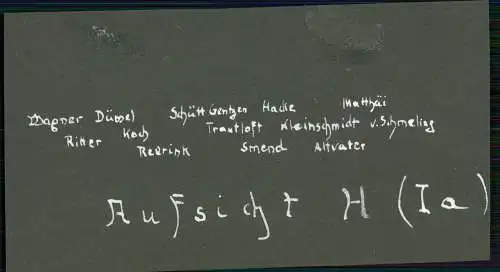 Wagner Düssel Schütt Gentzen Hacke Matthäi
Ritter Koch Trautloft Kleinschmidt v. Schmeling
Reurink Smend Altvater
Aufsicht H (Ia)